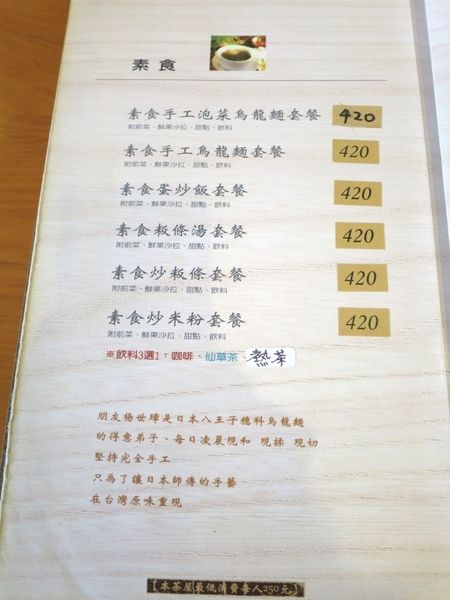 素食
素食手工泡菜烏龍麵套餐 420
附前菜、鮮果沙拉、甜點、飲料
素食手工烏龍麵套餐 420
附前菜、鮮果沙拉、甜點、飲料
素食蛋炒飯套餐 420
附前菜、鮮果沙拉、甜點、飲料
素食粄條湯套餐 420
附前菜、鮮果沙拉、甜點、飲料
素食炒粄條套餐 420
附前菜、鮮果沙拉、甜點、飲料
素食炒米粉套餐 420
附前菜、鮮果沙拉、甜點、飲料
※飲料3選1：咖啡、仙草茶、熱茶
朋友楊世瑋是日本八王子穗科烏龍麵
的得意弟子、每日凌晨現和 現揉 現切
堅持完全手工
只為了讓日本師傅的手藝
在台灣原味重現
【本茶屋最低消費每人250元】